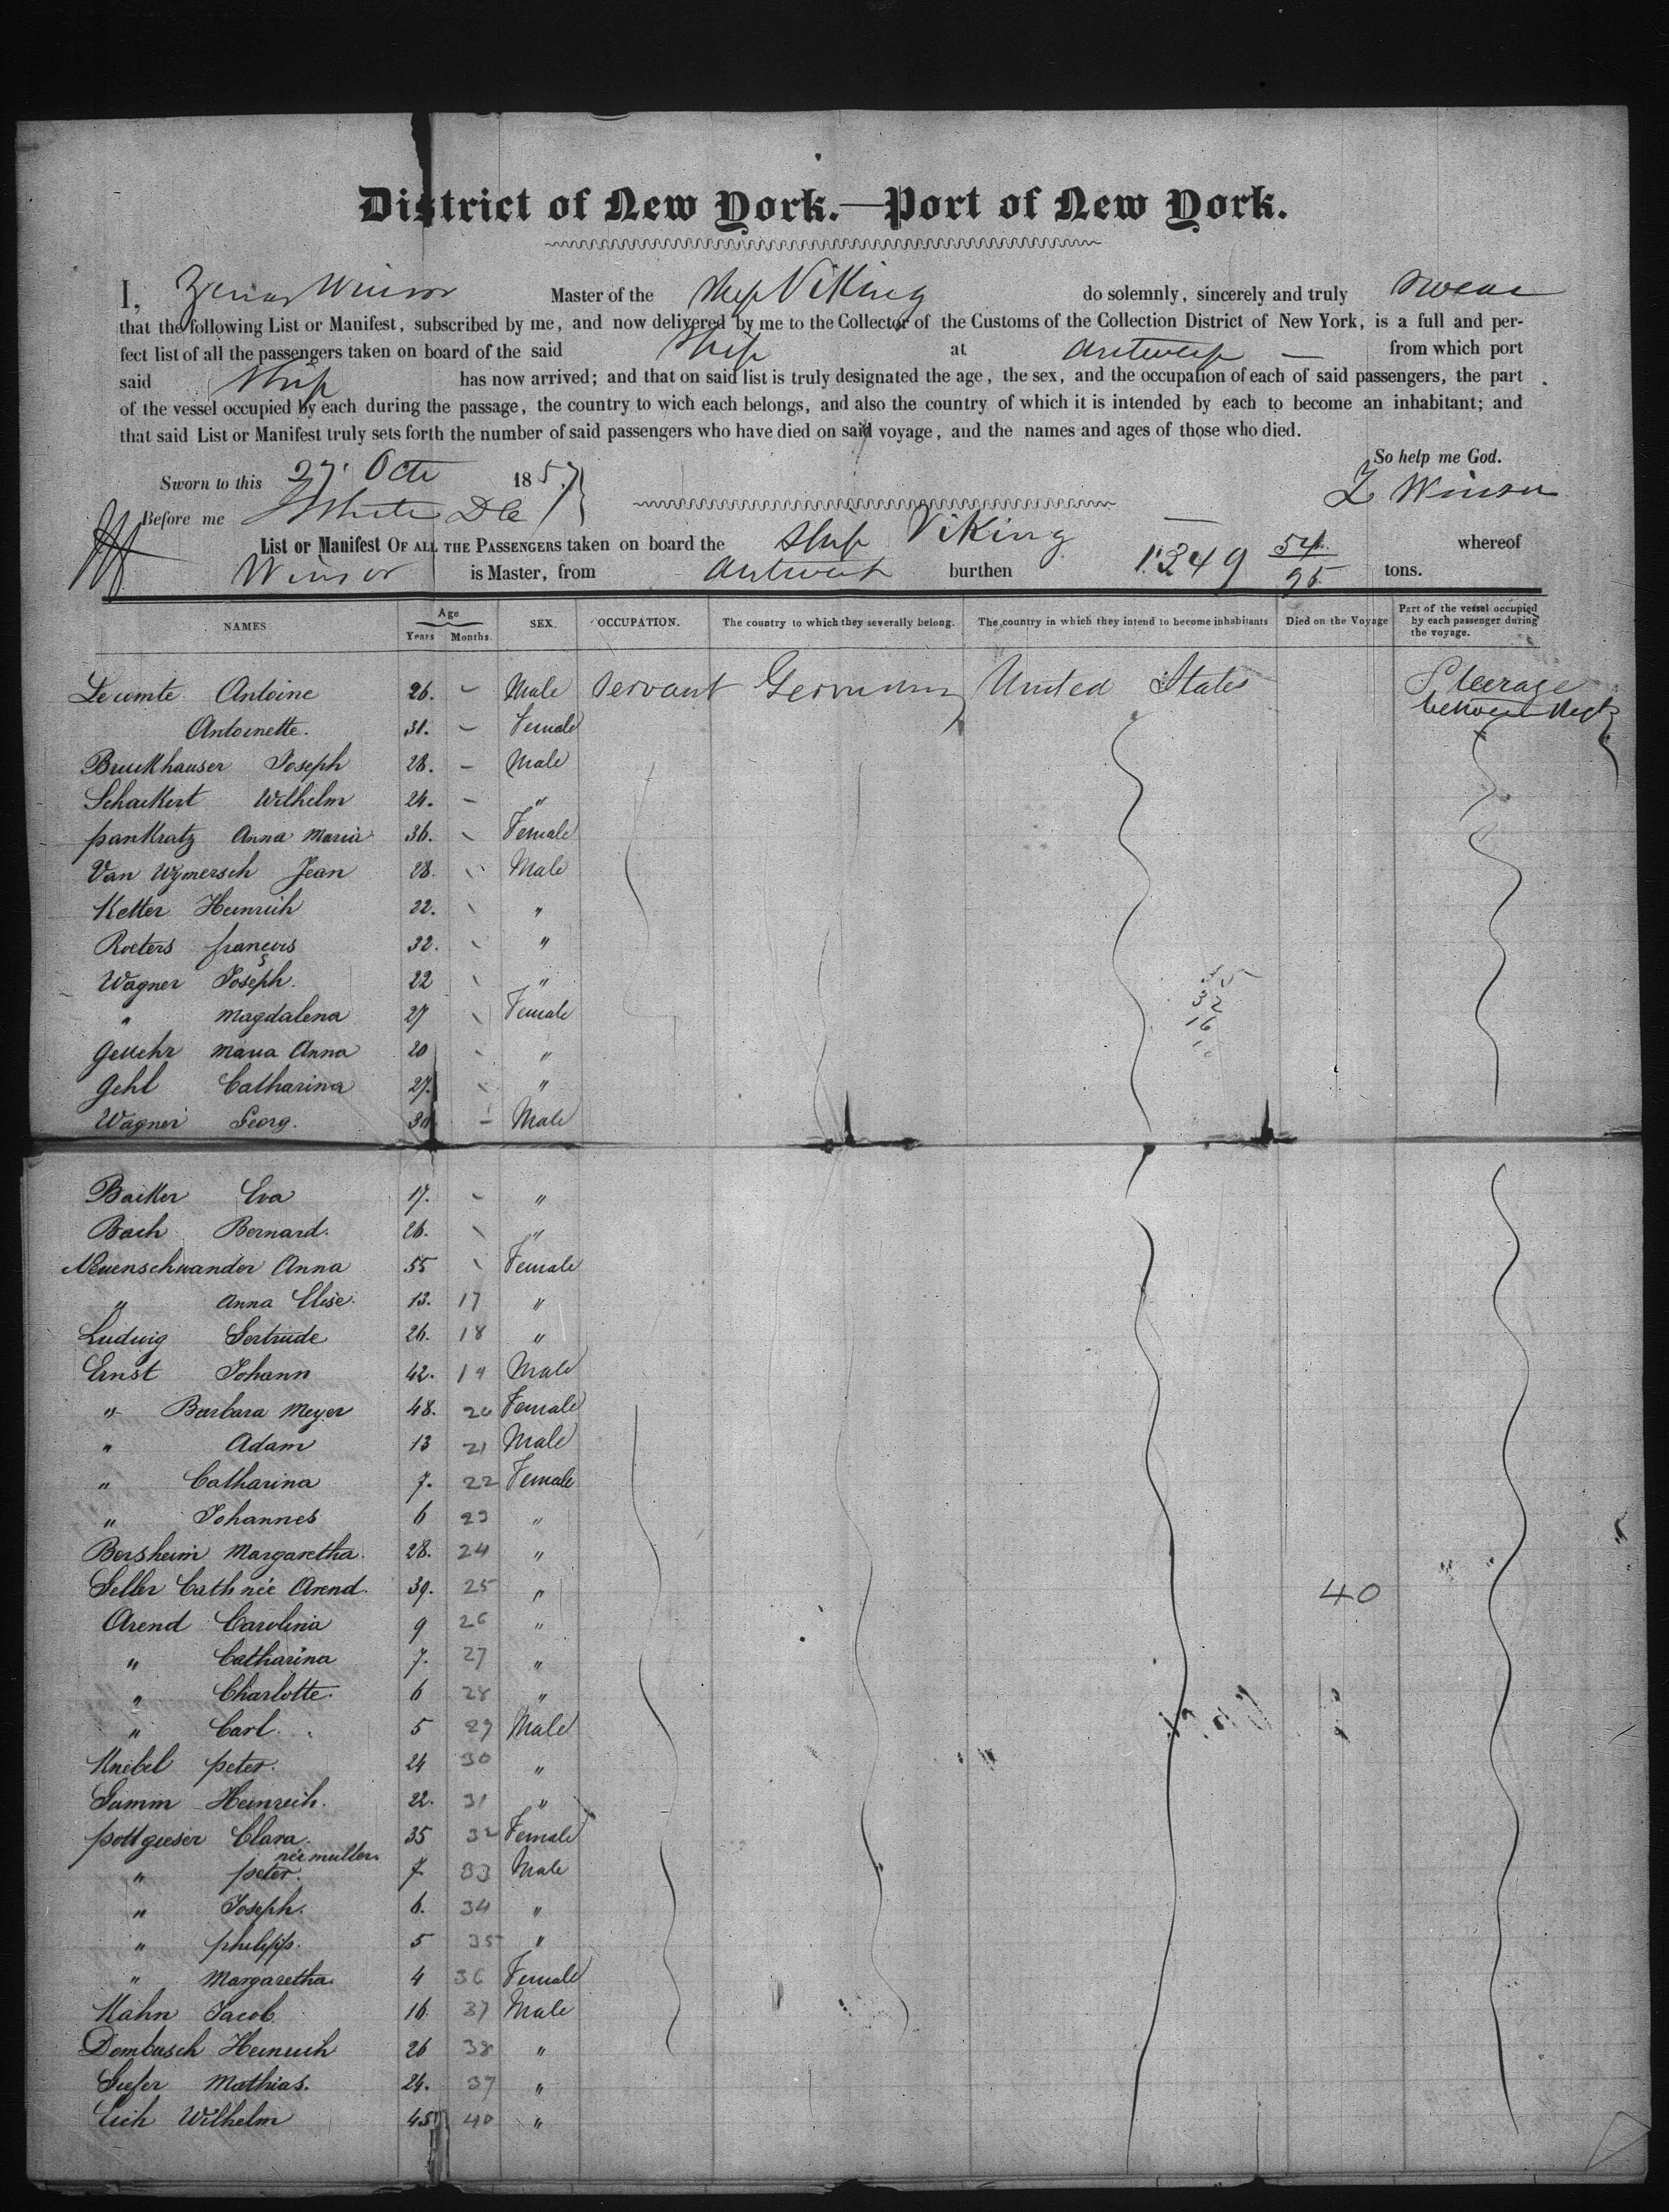 District of New York.—Port of New York.
I, Zenas Winsor Master of the Ship Viking do solemnly, sincerely and truly swear
that the following List or Manifest, subscribed by me, and now delivered by me to the Collector of the Customs of the Collection District of New York, is a full and per-
fect list of all the passengers taken on board of the said Ship at Antwerp — from which port
said Ship has now arrived; and that on said list is truly designated the age, the sex, and the occupation of each of said passengers, the part
of the vessel occupied by each during the passage, the country to wich each belongs, and also the country of which it is intended by each to become an inhabitant; and
that said List or Manifest truly sets forth the number of said passengers who have died on said voyage, and the names and ages of those who died.
So help me God.
Sworn to this 27 Oct 1857 Z Winsor
Before me White DC
List or Manifest OF ALL THE PASSENGERS taken on board the Ship Viking whereof
Winsor is Master, from Antwerp burthen 1349 54/95 tons.
NAMES Age Years Months SEX. OCCUPATION. The country to which they severally belong. The country in which they intend to become inhabitants Died on the Voyage Part of the vessel occupied by each passenger during the voyage.
Lecomte Antoine 26. – Male Servant Germany United States Steerage
between decks
Antoinette. 31. – Female
Bruckhauser Joseph 28. – Male
Schackert Wilhelm 24. – "
pankratz Anna Maria 36. Female
Van Wymersch Jean 28. Male
Ketter Heinrich 22. "
Roeters françois 32. "
Wagner Joseph. 22 "
" Magdalena 27 Female
32
16
Maria Anna 20 "
Gehl Catharina 27. "
Wagner Georg. 30 – Male
Backer Eva 17. "
Bach Bernard. 26. "
Neuenschwander Anna 55 Female
" Anna Elise. 13. 17 "
Ludwig Gertrude 26. 18 "
Ernst Johann 42. 19 Male
" Barbara Meyer 48. 20 Female
" Adam 13 21 Male
" Catharina 7. 22 Female
" Johannes 6 23 "
Borsheim Margaretha. 28. 24 "
Seller Cath née Arend. 39. 25 " 40
Arend Carolina 9 26 "
" Catharina 7. 27 "
" Charlotte. 6 28 "
" Carl. 5 29 Male
Knebel peter. 24 30 "
Gumm Heinrich. 22. 31 "
pottgieser Clara. 35 32 Female
née muller.
" peter. 7 33 Male
" Joseph. 6. 34 "
" philipp. 5 35 "
" Margaretha. 4 36 Female
Kahn Jacob 16. 37 Male
Dombusch Heinrich 26 38 "
Mathias. 24. 39 "
Eich Wilhelm 45 40 "